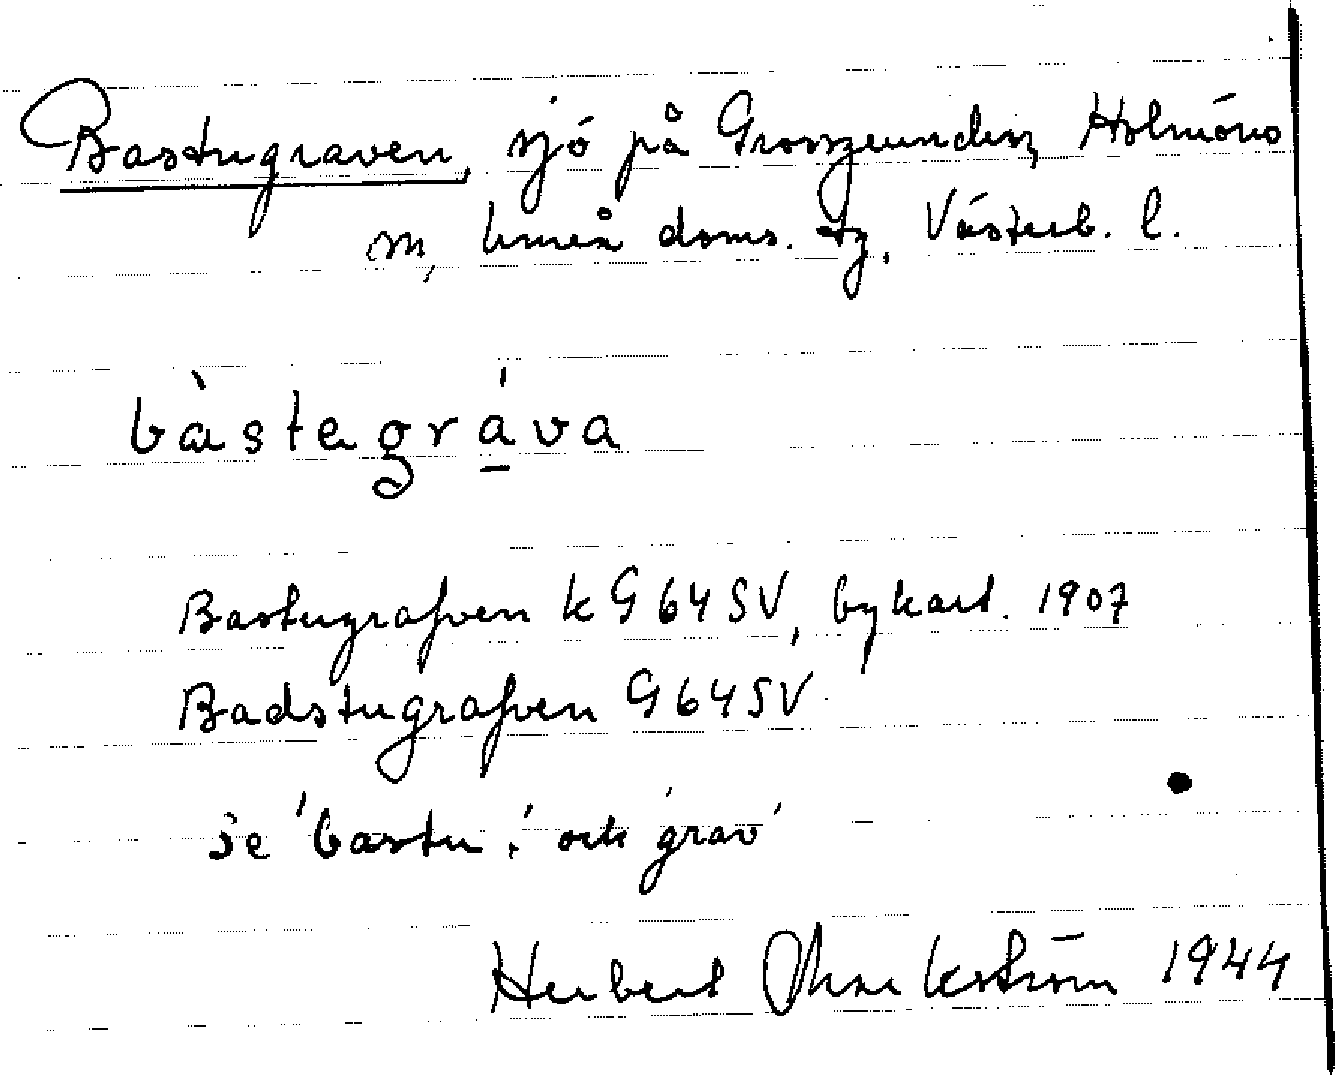 Bastugraven, sjö på Grossgrundsz, Holmöns
sn, Umeå doms. tg, Västerb. l.
bàstagráva
Bastugrafven k G 64 SV, bykart. 1907
Badstugrafven G 64 SV
je 'bastu' och 'grav'
Herbert Markström 1944